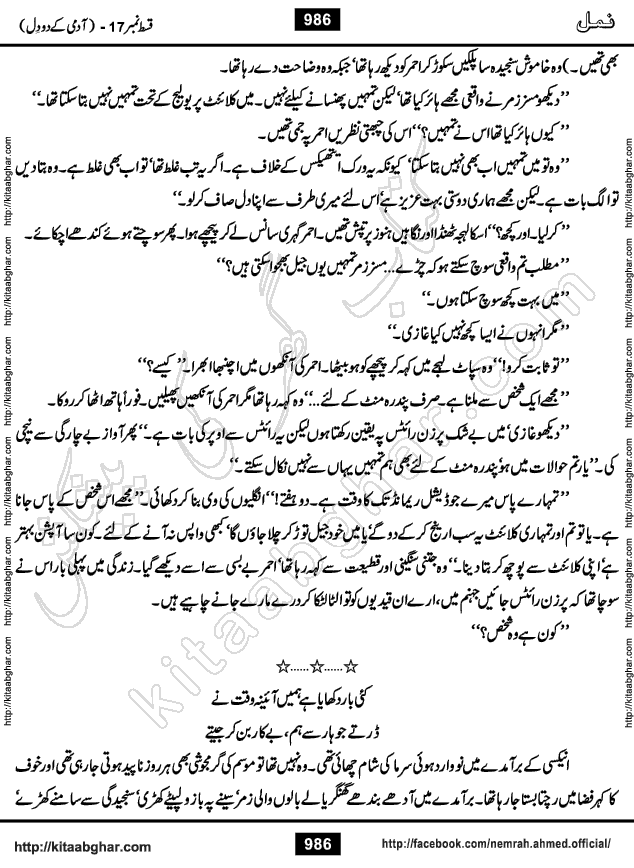 نمل
986
قسط نمبر 17 - (آدمی کے دو دل)
بھی تھیں۔) وہ خاموش سنجیدہ سا پلکیں سکوڑ کر احمر کو دیکھ رہا تھا' جبکہ وہ وضاحت دے رہا تھا۔
’’دیکھو مسز زمر نے واقعی مجھے ہائر کیا تھا' لیکن تمہیں پھنسانے کیلئے نہیں۔ میں کلائنٹ پریولیج کے تحت تمہیں نہیں بتا سکتا تھا۔‘‘
’’کیوں ہائر کیا تھا اس نے تمہیں؟‘‘ اس کی چبھتی نظریں احمر پہ جمی تھیں۔
’’وہ تو میں تمہیں اب بھی نہیں بتا سکتا' کیونکہ یہ ورک ایتھیکس کے خلاف ہے۔ اگر یہ تب غلط تھا' تو اب بھی غلط ہے۔ وہ بتا دیں
تو الگ بات ہے۔ لیکن مجھے ہماری دوستی بہت عزیز ہے' اس لئے میری طرف سے اپنا دل صاف کر لو۔‘‘
’’کر لیا۔ اور کچھ؟‘‘ اسکا لہجہ ٹھنڈا اور نگاہیں ہنوز پر تپش تھیں۔ احمر گہری سانس لے کر پیچھے ہوا۔ پھر سوچتے ہوئے کندھے اچکائے۔
’’مطلب تم واقعی سوچ سکتے ہو کہ چڑے... مسز زمر تمہیں یوں جیل بھجوا سکتی ہیں؟‘‘
’’میں بہت کچھ سوچ سکتا ہوں۔‘‘
’’مگر انہوں نے ایسا کچھ نہیں کیا غازی۔‘‘
’’تو ثابت کرو!‘‘ وہ سپاٹ لہجے میں کہہ کر پیچھے کو ہو بیٹھا۔ احمر کی آنکھوں میں اچنبھا ابھرا۔ ’’کیسے؟‘‘
’’مجھے ایک شخص سے ملنا ہے۔ صرف پندرہ منٹ کے لئے...‘‘ وہ کہہ رہا تھا مگر احمر کی آنکھیں پھیلیں۔ فوراً ہاتھ اٹھا کر روکا۔
’’دیکھو غازی' میں بے شک پرزن رائٹس پہ یقین رکھتا ہوں لیکن یہ رائٹس سے اوپر کی بات ہے۔‘‘ پھر آواز بے چارگی سے نیچی
کی۔ ’’یار تم حوالات میں ہو' پندرہ منٹ کے لئے بھی ہم تمہیں یہاں سے نہیں نکال سکتے۔‘‘
’’تمہارے پاس میرے جوڈیشل ریمانڈ تک کا وقت ہے۔ دو ہفتے!‘‘ انگلیوں کی وی بنا کر دکھائی۔ ’’مجھے اس شخص کے پاس جانا
ہے۔ یا تو تم اور تمہاری کلائنٹ یہ سب ارینج کر کے دو گے' یا میں خود جیل توڑ کر چلا جاؤں گا' کبھی واپس نہ آنے کے لئے۔ کون سا آپشن بہتر
ہے' اپنی کلائنٹ سے پوچھ کر بتا دینا۔‘‘ وہ جتنی سنگینی اور قطعیت سے کہہ رہا تھا' احمر بے بسی سے اسے دیکھے گیا۔ زندگی میں پہلی بار اس نے
سوچا تھا کہ پرزن رائٹس جائیں جہنم میں، ارے ان قیدیوں کو تو الٹا لٹکا کر درے مارے جانے چاہیے ہیں۔
’’کون ہے وہ شخص؟‘‘
☆......☆......☆
کئی بار دکھایا ہے ہمیں آئینہ وقت نے
ڈرتے جو ہار سے ہم، بے کار بن کر جیتے
انیکسی کے برآمدے میں نو وارد ہوئی سرما کی شام چھائی تھی۔ وہ نہیں تھا تو موسم کی گرمجوشی بھی ہر روز ناپید ہوتی جا رہی تھی اور خوف
کا کہر فضا میں رچتا بستا جا رہا تھا۔ برآمدے میں آدھے بندھے گھنگریالے بالوں والی زمر' سینے پہ بازو لپیٹے کھڑی' سنجیدگی سے سامنے کھڑے'
http://kitaabghar.com
986
http://facebook.com/nemrah.ahmed.official/
http://kitaabghar.com
http://kitaabghar.com
http://kitaabghar.com
http://kitaabghar.com
http://kitaabghar.com
http://kitaabghar.com
http://kitaabghar.com
http://kitaabghar.com
http://kitaabghar.com
http://kitaabghar.com
http://kitaabghar.com
http://kitaabghar.com
کتاب گھر کی پیشکش
kitaabghar.com